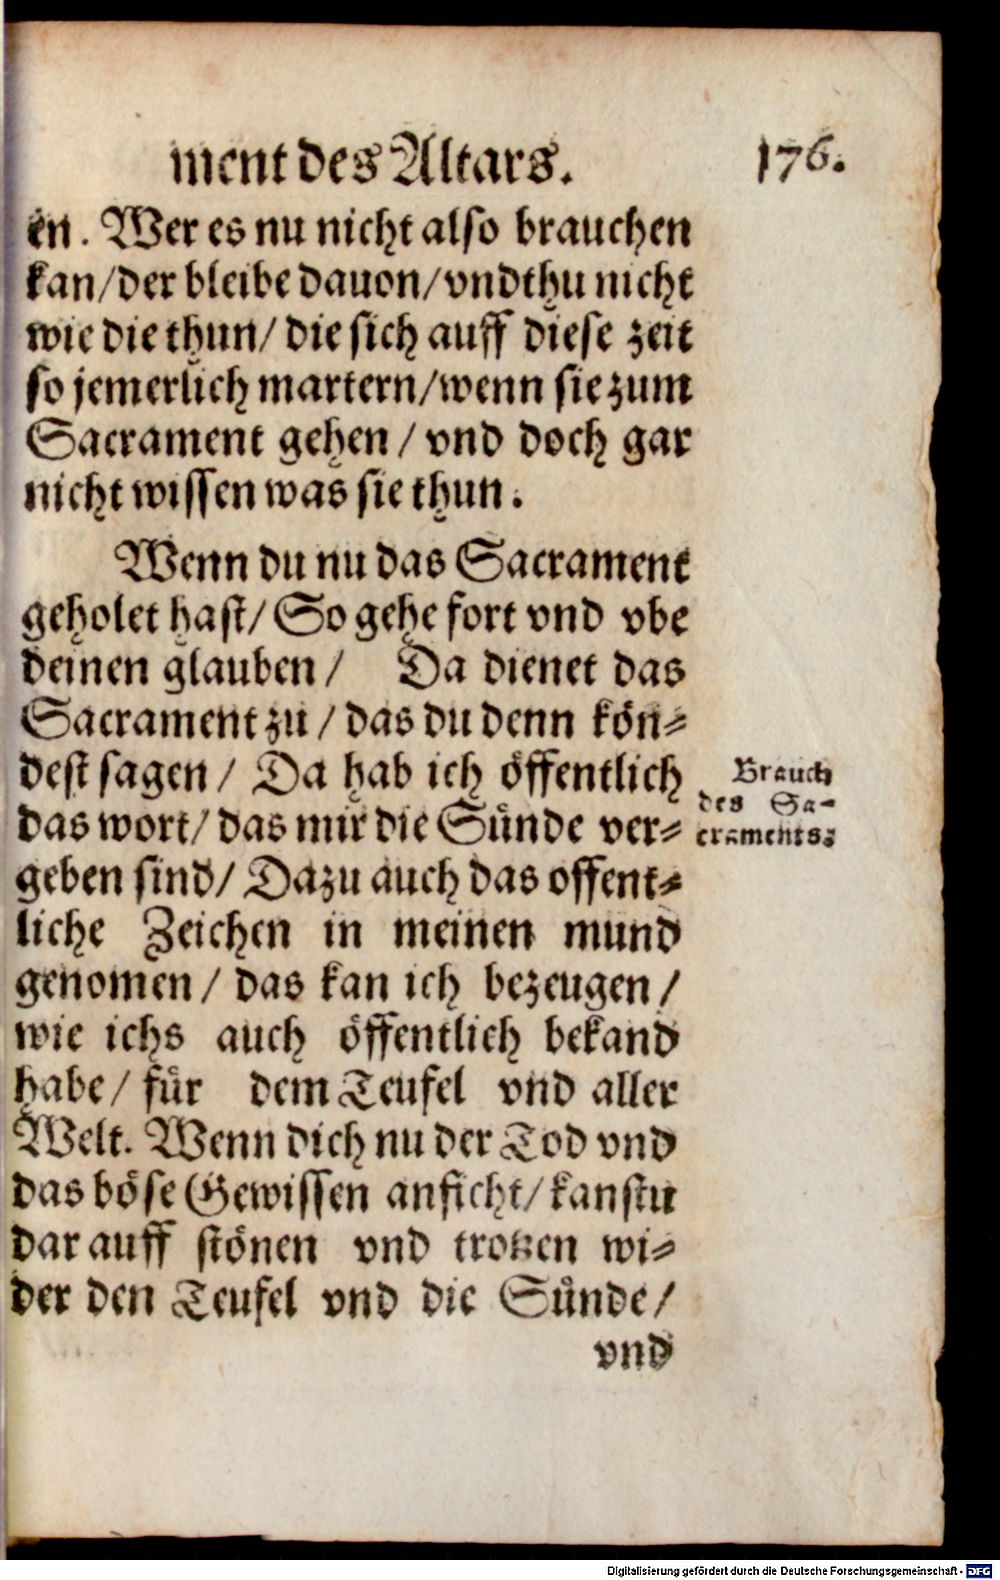 ment des Altars. 176.
en. Wer es nu nicht also brauchen
kan/der bleibe dauon/vnd thu nicht
wie die thun/ die sich auff diese zeit
so jemerlich martern/wenn sie zum
Sacrament gehen / vnd doch gar
nicht wissen was sie thun.
Wenn du nu das Sacrament
geholet hast/ So gehe fort vnd vbe
deinen glauben / Da dienet das
Sacrament zu / das du denn kön-
dest sagen / Da hab ich öffentlich
das wort/ das mir die Sünde ver-
geben sind/ Dazu auch das offent-
liche Zeichen in meinen mund
genomen / das kan ich bezeugen /
wie ichs auch öffentlich bekand
habe / für dem Teufel vnd aller
Welt. Wenn dich nu der Tod vnd
das böse Gewissen anficht/ kanstu
dar auff stönen vnd trotzen wi-
der den Teufel vnd die Sünde /
vnd
Brauch
des Sa-
craments.
Digitalisierung gefördert durch die Deutsche Forschungsgemeinschaft - DFG